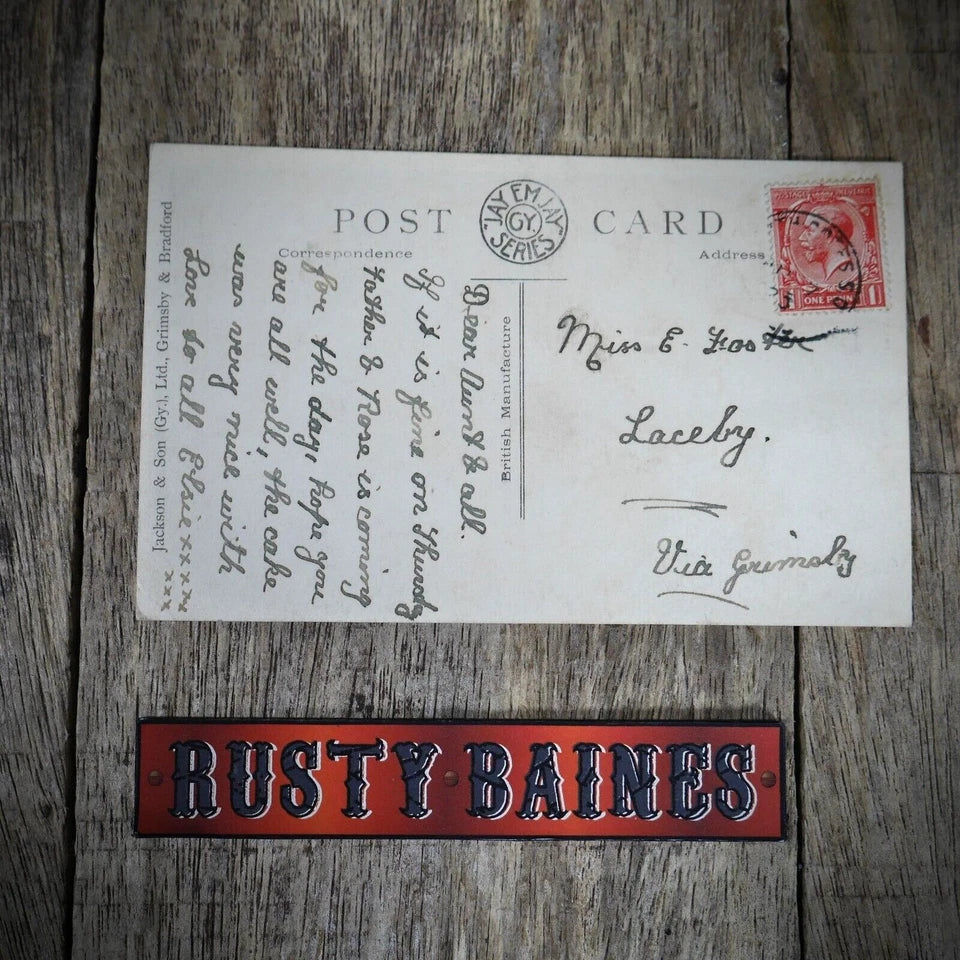 POST CARD
"JAY EM JAY" SERIES
GY.
Correspondence
Address
POSTAGE REVENUE
ONE PENNY
1
Dear Aunt & all.
If it is fine on Thursday
Father & Rose is coming
for the day, hope you
are all well, the cake
was very nice with
Love to all Elsie xxxxx
xxx
Jackson & Son (Gy.), Ltd., Grimsby & Bradford
British Manufacture
Miss E. Foster
Laceby.
Via Grimsby
RUSTY BAINES